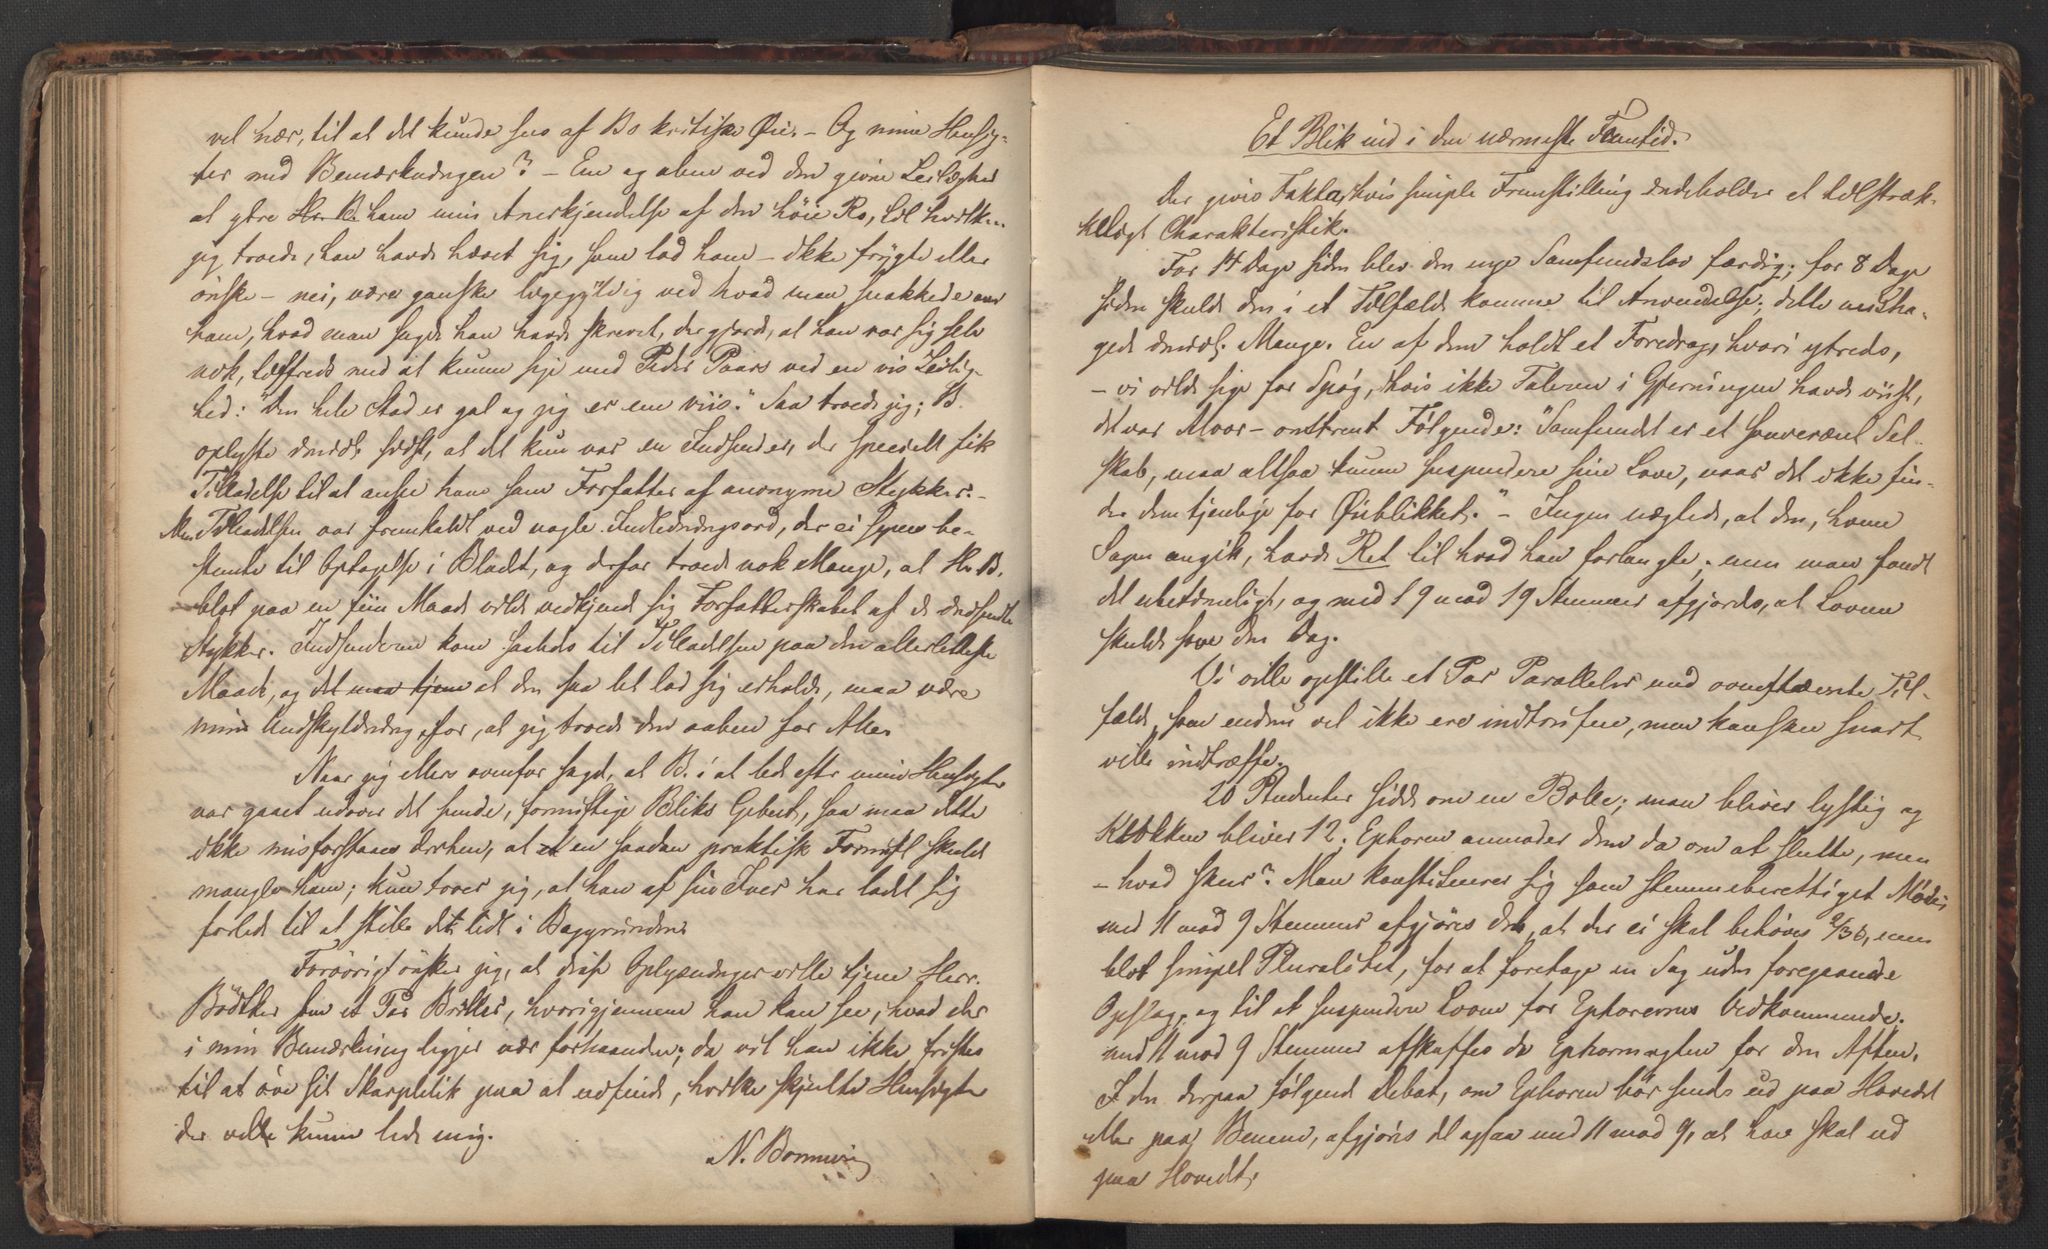 vel nær, til at det kunde sees af Bs kritiske Øie. – Og mine Hensig-
ter med Bemærkningen? – Een og alene ved den givne Leilighed
at ytre Hr. B. ham min Anerkjendelse af den høie Ro, til hvilken
jeg troede, han havde hævet sig, som lod ham – ikke frygte eller
önske – nei, være ganske ligegyldig ved hvad man snakkede om
ham, hvad man sagde han havde skrevet, der gjorde, at han var sig selv
nok, tilfreds med at kunne sige med Peder Paars ved en vis Leilig-
hed: "den hele Stad er gal og jeg er ene viis." Saa troede jeg; B.
oplyste imidl. sidst, at det kun var en Indsender, der specielt fik
Tilladelse til at ansee ham som Forfatter af anonyme Stykker. –
Men Tilladelsen var fremkaldt ved nogle Indledningsord, der ei synes be-
stemte til Optagelse i Bladet, og derfor troede nok Mange, at Hr. B.
blot paa en fiin Maade vilde vedkjende sig Forfatterskabet af de indsendte
Stykker. Indsenderen kom saaledes til Tilladelsen paa den allerletteste
Maade, og det maa tjene at den saa let lod sig erholde, maa være
min Undskyldning, for, at jeg troede den aaben for Alle.
Naar jeg ellers ovenfor sagde, at B. i at lede efter mine Hensigter
var gaaet udover det sunde, fornuftige Bliks Gebeet, saa maa dette
ikke misforstaaes derhen, at et en saadan praktisk Fornuft skulde
mangle ham; kun troer jeg, at han af sin Iver har ladet sig
forlede til at stille det lidt i Baggrunden.
Forövrigt önsker jeg, at disse Oplysninger ville tjene Herr
Bödtker som et Par Briller, hvorigjennem han kan see, hvad der
i min Bemærkning ligger nær forhaanden; da vil han ikke fristes
til at öve sit Skarpblik paa at udfinde, hvilke skjulte Hensigter
der vel kunne lede mig.
N. Bonnevie
Et Blik ind i den nærmeste Fremtid.
Der gives Fakta, hvis simple Fremstilling indeholder et tilstræk-
keligt Charakteristik.
For 14 Dage siden blev den nye Samfundslov færdig; for 8 Dage
siden skulde den i et Tilfælde komme til Anvendelse; dette misha-
gede imidl. Mange. En af dem holdt et Foredrag, hvori ytredes,
– vi vilde sige for Spög, hvis ikke Taleren i Gjerningen havde viist,
det var Alvor – omtrent Fölgende: "Samfundet er et souveraint Sel-
skab, maa altsaa kunne suspendere sine Love, naar det ikke fin-
der dem tjenlige for Øieblikket." – Ingen nægtede, at den, hvem
Sagen angik, havde Ret til hvad han forlangte; men man fandt
det ubetimeligt, og med 19 mod 19 Stemmer afgjordes, at Loven
skulde sove den Dag.
Vi ville opstille et Par Paralleler med ovennævnte Til-
fælde, som endnu vel ikke ere indtrufne, men kanskee snart
ville indtræffe.
20 Studenter sidde om en Bolle; man bliver lystig og
Klokken bliver 12. Ephoren anmoder dem da om at slutte, men
– hvad skeer? Man konstituerer sig som stemmeberettiget Möde;
med 11 mod 9 Stemmer afgjöres det, at der ei skal behöves 2/30, men
blot simpel Pluralitet, for at foretage en Sag uden foregaaende
Opslag, og til at suspendere Loven for Ephorernes Vedkommende.
med 11 mod 9 Stemmer afskaffes da Ephormagten for den Aften.
I den derpaa fölgende Debat, om Ephoren bör sendes ud paa Hovedet
eller paa Benene, afgjöres det ogsaa med 11 mod 9, at han skal ud
paa Hovedet.